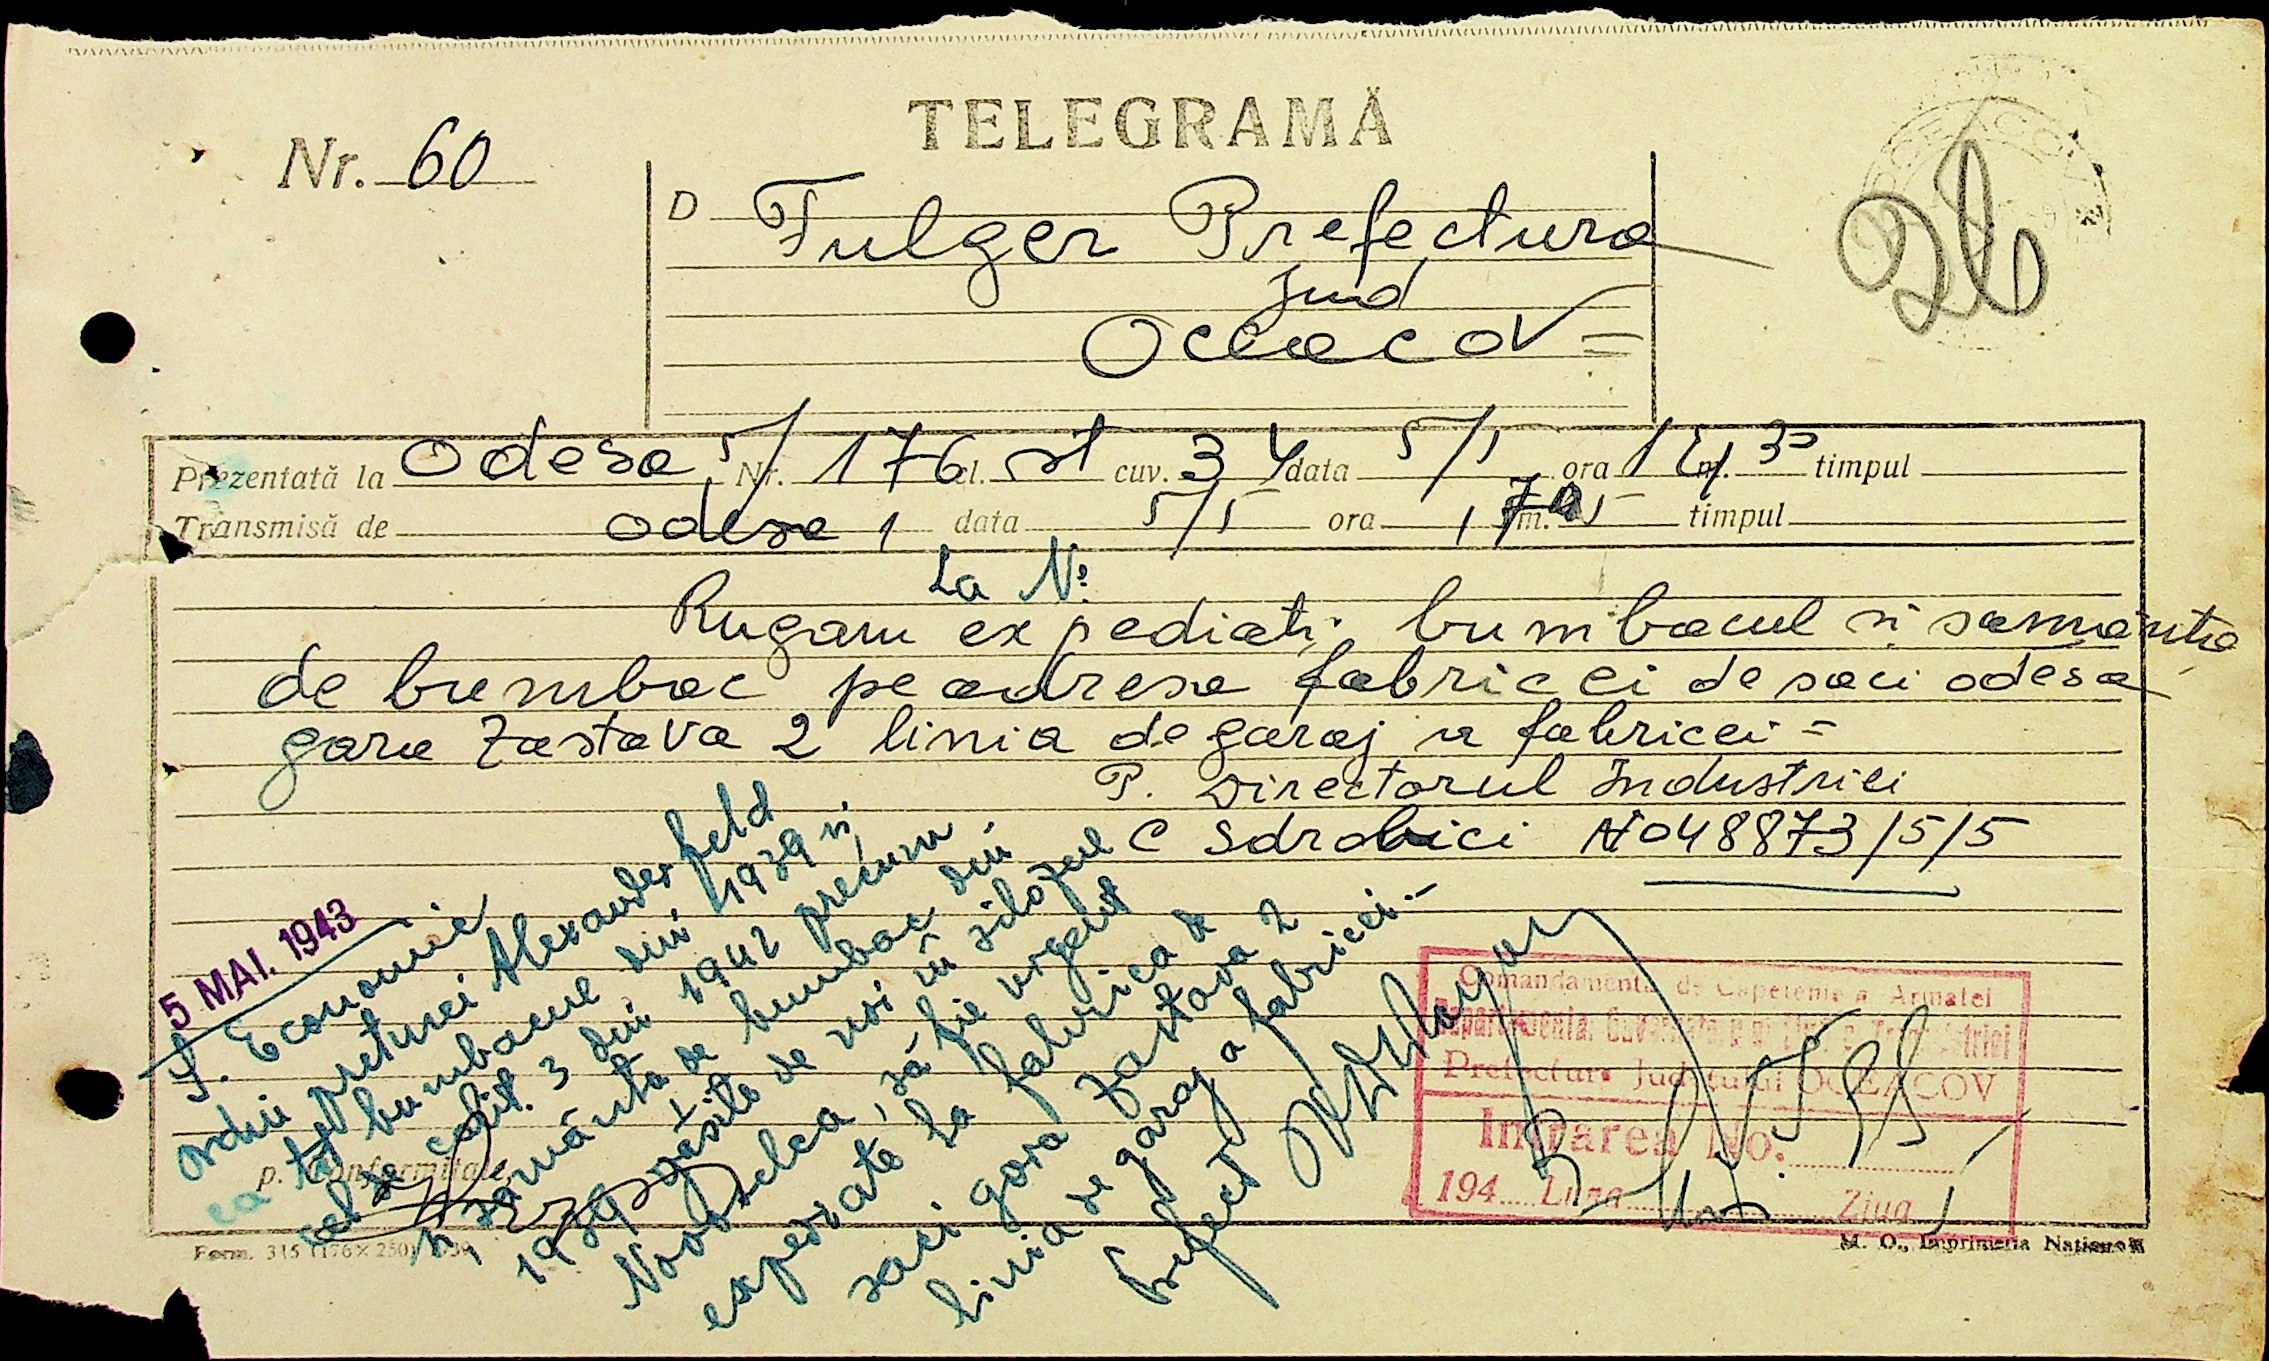 TELEGRAMĂ
Nr. 60
D Fulger Prefectura
Jud
Oceacov =
Prezentată la Odesa 5/ Nr. 176 el. st cuv. 34 data 5/5 ora 14 m. 30 timpul
Transmisă de odesa 1 data 5/5 ora 17 m. 05 timpul
La No
Rugam expediati bumbacul si samanta
de bumbac pe adresa fabricei de saci odesa
gara Zastava 2 linia de garaj a fabricei =
P. Directorul Industriei
C Sdrobici No 48873/5/5
5 MAI. 1943
S. Economic
ordin preturei Alexanderfeld
ca tot bumbacul din 1939 si
cel de calit. 3 din 1942 precum
si sământa de bumbac din
1939 găsite de noi în silozul
Novoselca, să fie urgent
expediate la fabrica de
saci gara Zastava 2
linia de garaj a fabricei.-
Prefect
p. Conformitate,
Comandamentul de Capetenie a Armatei
Prefectura Judetului OCEACOV
Intrarea No.
194 Luna Ziua
Form. 315 (176×250) 1939
M. O., Imprimeria Natională
26